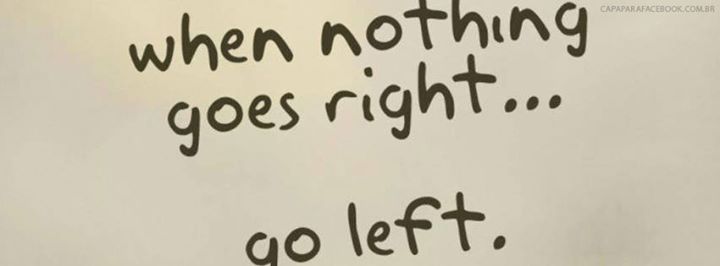 CAPAPARAFACEBOOK.COM.BR
when nothing
goes right...
go left.